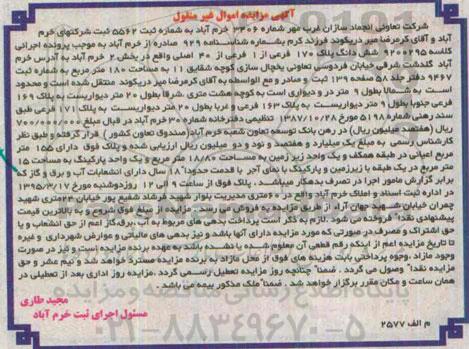 آگهی مزایده اموال غیر منقول
شرکت تعاونی انجماد سازان غرب مهر شماره ۳۳۰۶ خرم آباد به شماره ثبت ۵۵۶۲ ثبت شرکتهای خرم
آباد و آقای کرمرضا میر دریکوند فرزند کرم بشماره شناسنامه ۹۲۹ صادره از خرم آباد به موجب پرونده اجرائی
کلاسه ۹۲۰۰۲۹۵ شش دانگ پلاک ۱۷۰ فرعی از ۱ فرعی از ۴۰ اصلی واقع در بخش ۲ خرم آباد به آدرس خرم
آباد گلدشت شرقی خیابان فردوسی تعاونی یخچال سازی کوچه شقایق ۱۱ به مساحت ۱۸۰ متر مربع به شماره ثبت
۹۴۶۷ دفتر جلد ۵۸ صفحه ۱۳۹ ثبت و صادر و مع الواسطه به آقای کرمرضا میر دریکوند منتقل شده است و محدود
است به شمالا بطول ۹ متر در و دیواری است به کوچه هشت متری شرقا بطول ۲۰ متر دیواریست به پلاک ۱۶۹
فرعی جنوبا بطول ۹ متر دیواریست به پلاک ۱۶۳ فرعی و غربا بطول ۲۰ متر دیواریست به پلاک ۱۷۱ فرعی طبق
سند رهنی شماره ۵۱۹۸ مورخ ۱۳۸۷/۱۰/۲۸ تنظیمی دفترخانه شماره ۳۰ خرم آباد در قبال مبلغ ۷۰۰/۰۰۰/۰۰۰
ریال (هفتصد میلیون ریال) در رهن بانک توسعه تعاون شعبه خرم آباد(صندوق تعاون کشور) قرار گرفته و طبق نظر
کارشناس رسمی به مبلغ یک میلیارد و هفتصد و نود و دو میلیون ریال ارزیابی شده و پلاک فوق دارای ۱۵۵ متر
مربع اعیانی در طبقه همکف و یک واحد زیر زمین به مساحت ۱۸/۸۰ متر مربع و یک واحد پارکینگ به مساحت ۱۵
متر مربع در یک طبقه با زیرزمین و پارکینگ با نمای آجر با قدمت حدود ۱۸ سال دارای انشعابات آب و برق و گاز که
برابر گزارش مامور اجرا در تصرف بدهکار میباشد . پلاک فوق از ساعت ۹ الی ۱۲ روز دوشنبه مورخ ۱۳۹۵/۳/۱۷
در اداره ثبت اسناد و املاک خرم آباد واقع در ۶۰ متری مدیریت بلوار شهید فرشاد شفیع پور خیابان ۲۲ متری شهید
چمران خیابان شهید جهان آراء از طریق مزایده به فروش می رسد . مزایده از مبلغ فوق شروع و به بالاترین قیمت
پیشنهادی نقدا" فروخته می شود . لازم به ذکر است پرداخت بدهی های مربوط به آب ،برق ،گاز اعم از حق انشعاب و یا
حق اشتراک و مصرف در صورتی که مورد مزایده دارای آنها باشد و نیز بدهی های مالیاتی و عوارض شهرداری و غیره
تا تاریخ مزایده اعم از اینکه رقم قطعی آن معلوم شده یا نشده باشد به عهده برنده مزایده است و نیز در صورت
وجود مازاد ،وجوه پرداختی بابت هزینه های فوق از محل مازاد به برنده مزایده مسترد خواهد شد و نیم عشر و حق
مزایده نقدا" وصول می گردد . ضمنا" چنانچه روز مزایده تعطیل رسمی گردد .مزایده روز اداری بعد از تعطیلی در
همان ساعت و مکان مقرر برگزار خواهد شد . ضمنا" ملک مذکور بیمه می باشد .
مجید طاری
مسئول اجرای ثبت خرم آباد
م الف ۲۵۷۷
پایگاه اطلاع رسانی مناقصه و مزایده
۰۲۱-۸۸۳۴۹۶۷۰-۵